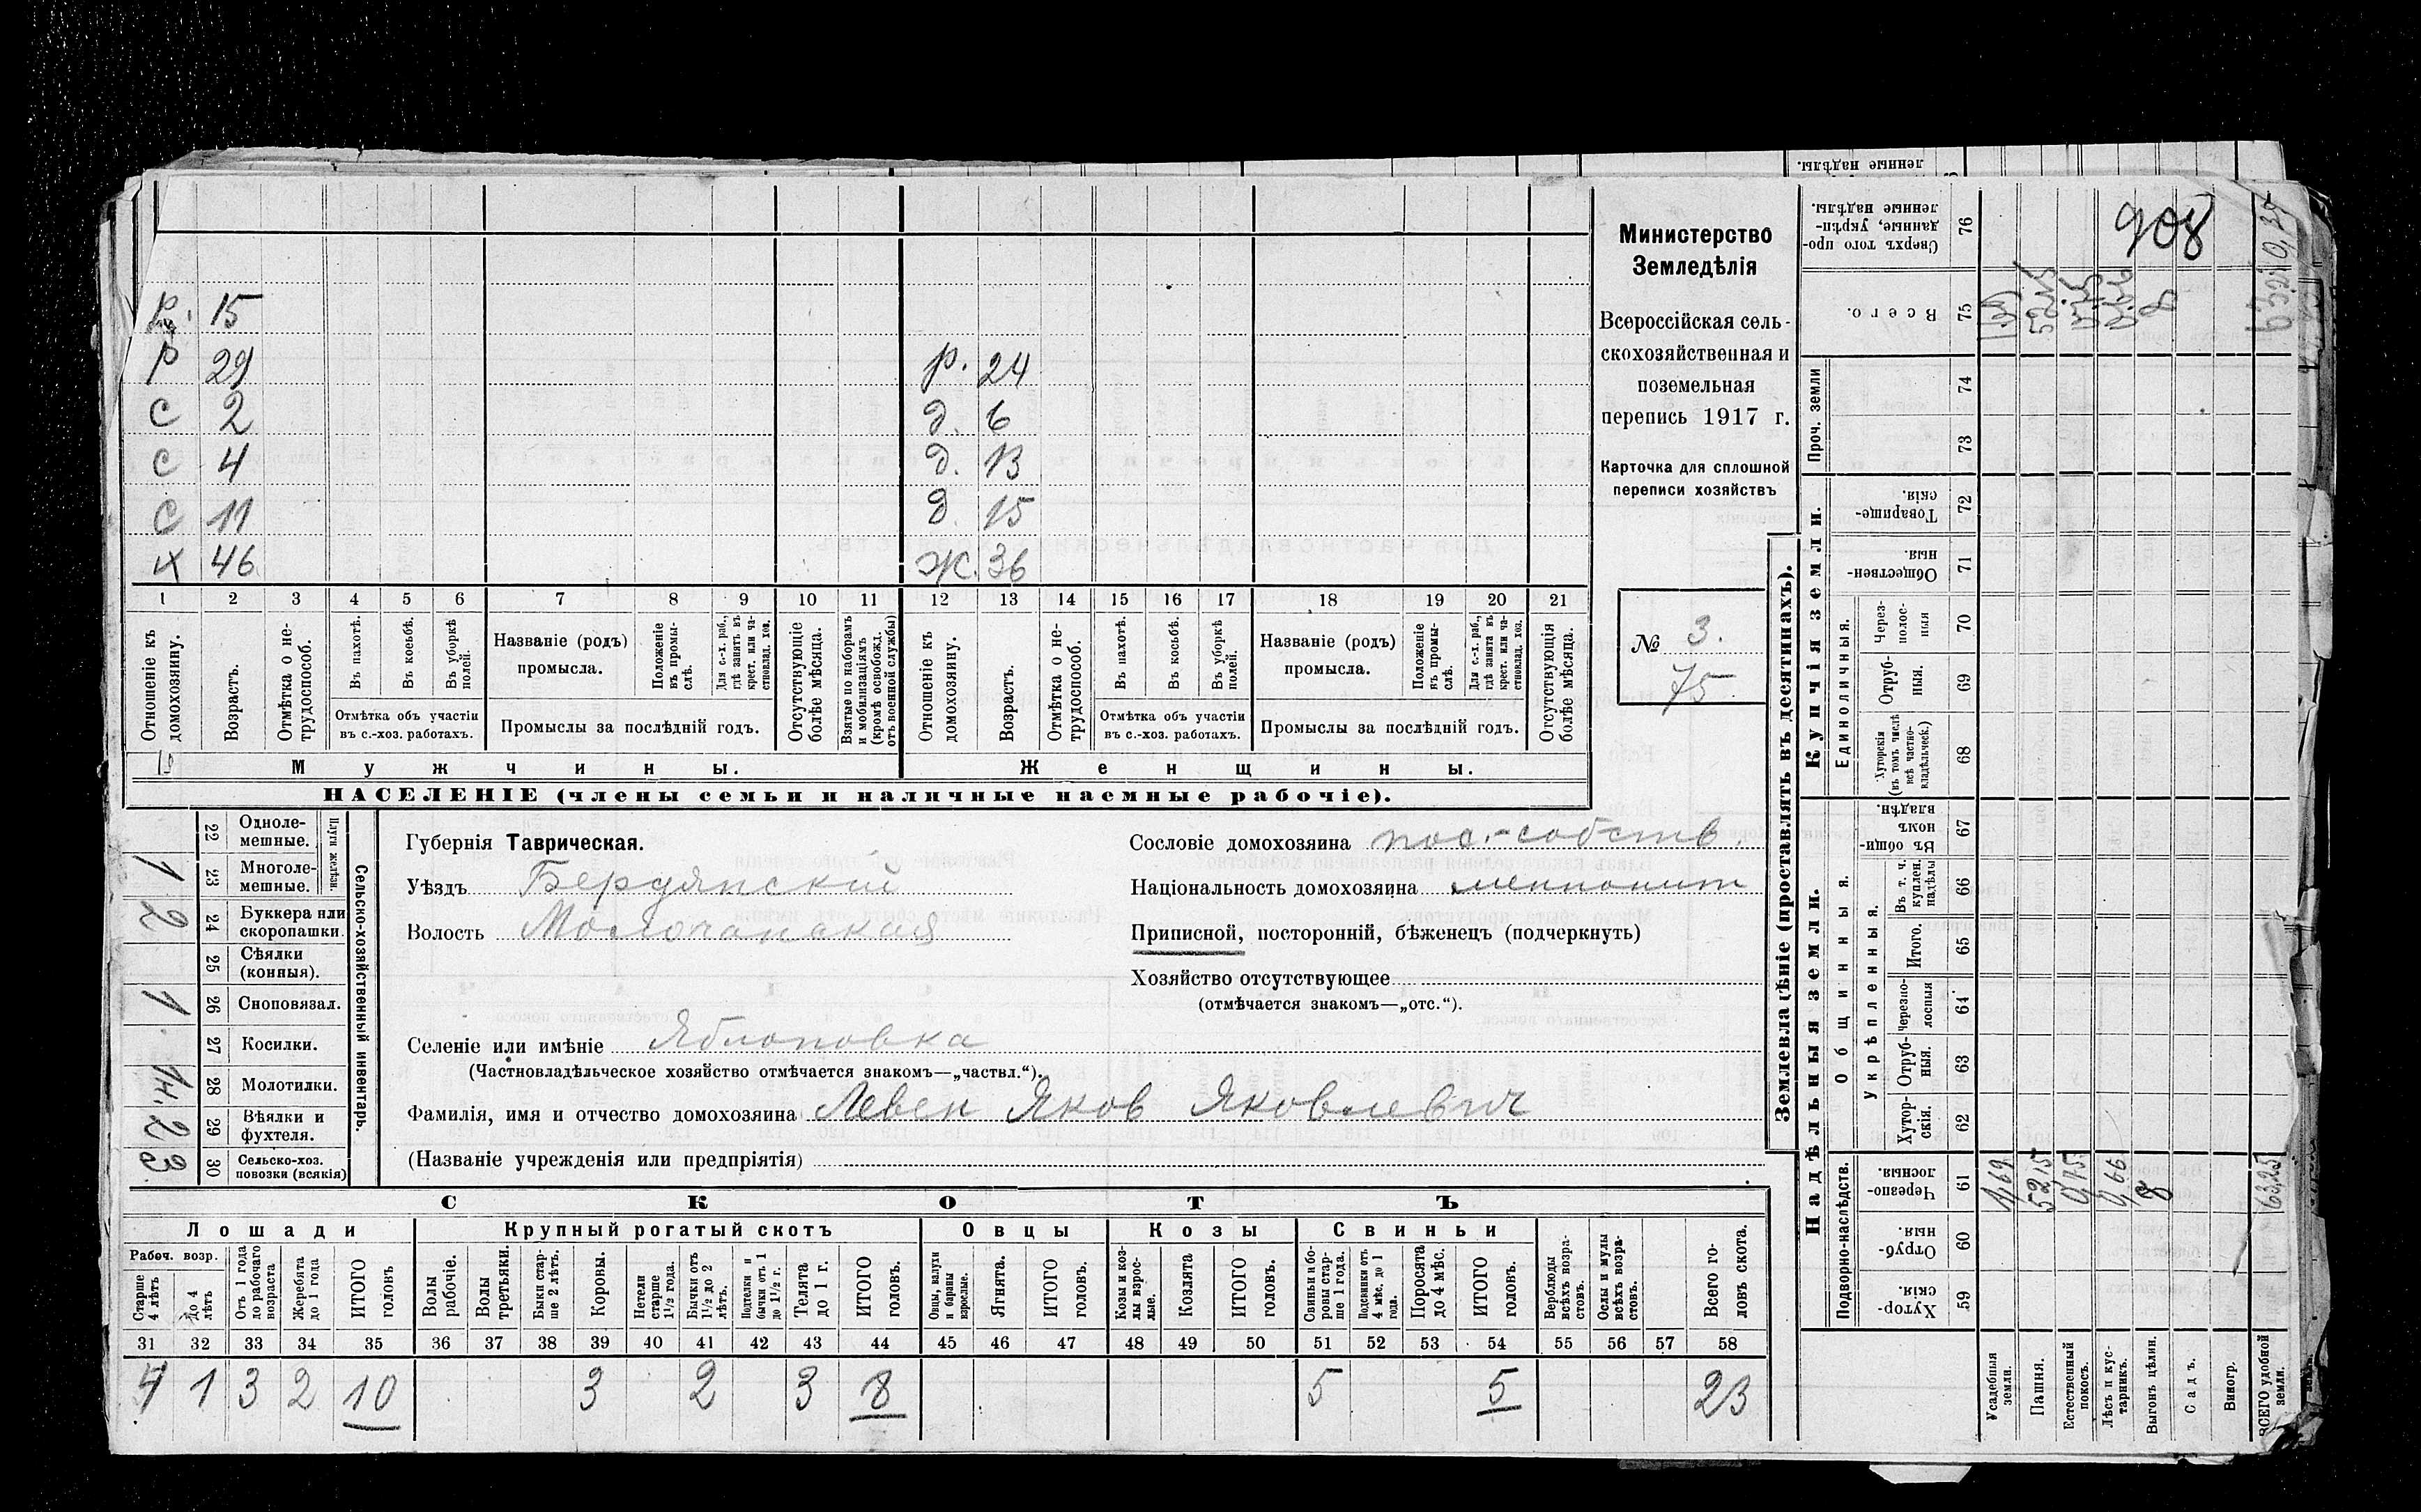 ленные надѣлы.
р. 15
р 29
р. 24
с 2
д. 6
с 4
д. 13
с 11
д. 15
х 46
ж. 36
1 2 3 4 5 6 7 8 9 10 11 12 13 14 15 16 17 18 19 20 21
Отношеніе къ домохозяину.
Возрастъ.
Отмѣтка о не-
трудоспособ.
Въ пахотѣ.
Въ косьбѣ.
Въ уборкѣ полей.
Отмѣтка объ участіи
въ с.-хоз. работахъ.
Названіе (родъ)
промысла.
Положеніе въ промы-
слѣ.
Для с.-х. раб., гдѣ занятъ въ крест. или ча-
стновлад. хоз.
Промыслы за послѣдній годъ.
Отсутствующіе болѣе мѣсяца.
Взятые по наборамъ и мобилизаціямъ (кромѣ освобожд. отъ военной службы)
Отношеніе къ домохозяину.
Возрастъ.
Отмѣтка о не-
трудоспособ.
Въ пахотѣ.
Въ косьбѣ.
Въ уборкѣ полей.
Отмѣтка объ участіи
въ с.-хоз. работахъ.
Названіе (родъ)
промысла.
Положеніе въ промы-
слѣ.
Для с.-х. раб., гдѣ занята въ крест. или ча-
стновлад. хоз.
Промыслы за послѣдній годъ.
Отсутствующія болѣе мѣсяца.
Мужчины.
Женщины.
НАСЕЛЕНІЕ (члены семьи и наличные наемные рабочіе).
Министерство
Земледѣлія
Всероссійская сель-
скохозяйственная и
поземельная
перепись 1917 г.
Карточка для сплошной
переписи хозяйствъ
№ 3.
75
Сельско-хозяйственный инвентарь.
Плуги желѣзн.
22 Одноле-
мешные.
1 23 Многоле-
мешные.
2 24 Буккера или
скоропашки.
25 Сѣялки
(конныя).
1 26 Сноповязал.
27 Косилки.
28 Молотилки.
2 29 Вѣялки и
фухтеля.
3 30 Сельско-хоз.
повозки (всякія)
Губернія Таврическая.
Уѣздъ Бердянскій
Волость Молочанская
Сословіе домохозяина пос.-собств.
Національность домохозяина меннонит
Приписной, посторонній, бѣженецъ (подчеркнуть)
Хозяйство отсутствующее
(отмѣчается знакомъ—„отс.“).
Селеніе или имѣніе Яблоновка
(Частновладѣльческое хозяйство отмѣчается знакомъ—„частвл.“).
Фамилія, имя и отчество домохозяина Левен Яков Яковлевич
(Названіе учрежденія или предпріятія)
СКОТЪ
Лошади
Крупный рогатый скотъ
Овцы
Козы
Свиньи
Рабоч. возр.
Старше 4 лѣтъ
До 4 лѣтъ
Отъ 1 года до рабочаго возраста
Жеребята до 1 года
ИТОГО головъ
Волы рабочіе.
Волы третьяки.
Быки стар-
ше 2 лѣтъ.
Коровы.
Нетели старше 1½ года.
Бычки отъ 1½ до 2 лѣтъ.
Подтелки и бычки отъ 1 до 1½ г.
Телята до 1 г.
ИТОГО головъ.
Овцы, валухи и бараны взрослые.
Ягнята.
ИТОГО головъ.
Козы и коз-
лы взрос-
лые.
Козлята
ИТОГО головъ.
Свиньи и бо-
ровы стар-
ше 1 года.
Подсвинки отъ 4 мѣс. до 1 года.
Поросята до 4 мѣс.
ИТОГО головъ.
Верблюды всѣхъ возра-
стовъ.
Ослы и мулы всѣхъ возра-
стовъ.
Всего го-
ловъ скота.
31 32 33 34 35 36 37 38 39 40 41 42 43 44 45 46 47 48 49 50 51 52 53 54 55 56 57 58
4 1 3 2 10 3 2 3 8 5 5 23
Землевладѣніе (проставлять въ десятинахъ).
Купчія земли.
Надѣльныя земли.
Сверхъ того про-
данные, укрѣп-
ленные надѣлы.
76
908
Всего.
75
Проч. земли
74
73
Товарище-
скія.
72
Обществен-
ныя.
71
Единоличныя.
Через-
полос-
ныя
70
Отруб-
ныя.
69
Хуторскія
(въ томъ числѣ
всѣ частно-
владѣльческ.)
68
Общинныя.
Въ общи-
номъ
владѣн.
67
Укрѣпленныя.
Въ т. ч.
куплен.
надѣлы
66
Итого.
65
Черезпо-
лосныя
64
Отруб-
ныя.
63
Хутор-
скія.
62
Подворно-наслѣдств.
Черезпо-
лосныя.
61
1,69 52,15 0,75 0,66 8 63,25
Отруб-
ныя.
60
Хутор-
скія.
59
Усадебныя земли.
Пашня.
Естественный покосъ.
Лѣсъ и кус-
тарникъ.
Выгонъ цѣлин.
Садъ.
Виногр.
ВСЕГО удобной земли.